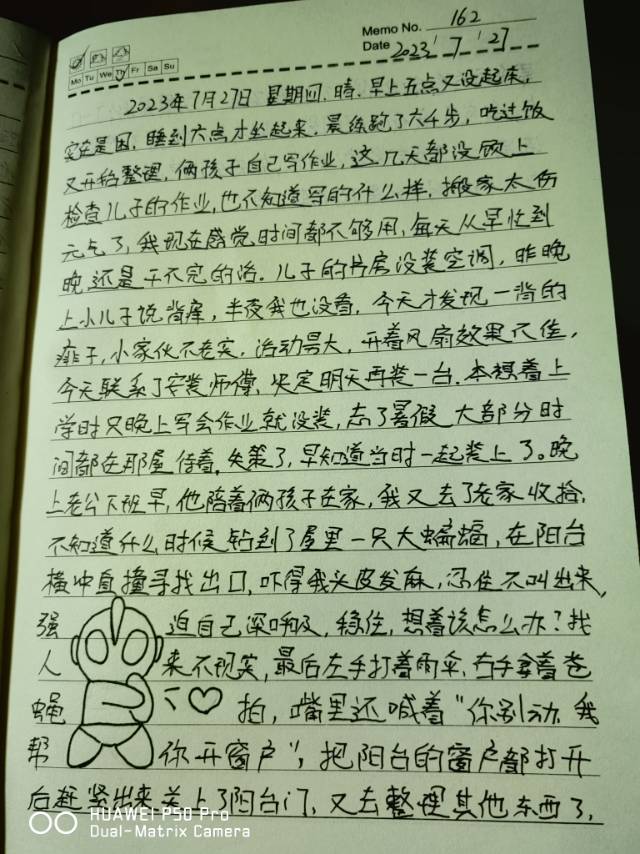 Memo No. 162
Mo Tu We Th Fr Sa Su
Date 2023' 7 '27
2023年7月27日 星期四. 晴. 早上五点又没起床,
实在是困, 睡到六点才坐起来. 晨练跑了六千步, 吃过饭
又开始整理, 俩孩子自己写作业, 这几天都没顾上
检查儿子的作业, 也不知道写的什么样. 搬家太伤
元气了, 我现在感觉时间都不够用, 每天从早忙到
晚还是干不完的活. 儿子的书房没装空调, 昨晚
上小儿子说背痒, 半夜我也没看, 今天才发现一背的
痱子, 小家伙不老实, 活动量大, 开着风扇效果不佳,
今天联系了安装师傅, 决定明天再装一台. 本想着上
学时只晚上写会作业就没装, 忘了暑假大部分时
间都在那屋待着, 失策了, 早知道当时一起装上了。晚
上老公下班早, 他陪着俩孩子在家, 我又去了老家收拾,
不知道什么时候钻到了屋里一只大蝙蝠, 在阳台
横冲直撞寻找出口, 吓得我头皮发麻, 忍住不叫出来,
强迫自己深呼吸, 稳住, 想着该怎么办? 找
人来不现实, 最后左手打着雨伞, 右手拿着苍
蝇拍, 嘴里还喊着“你别动, 我
帮你开窗户”, 把阳台的窗户都打开
后赶紧出来, 关上了阳台门, 又去整理其他东西了,
HUAWEI P50 Pro
Dual-Matrix Camera